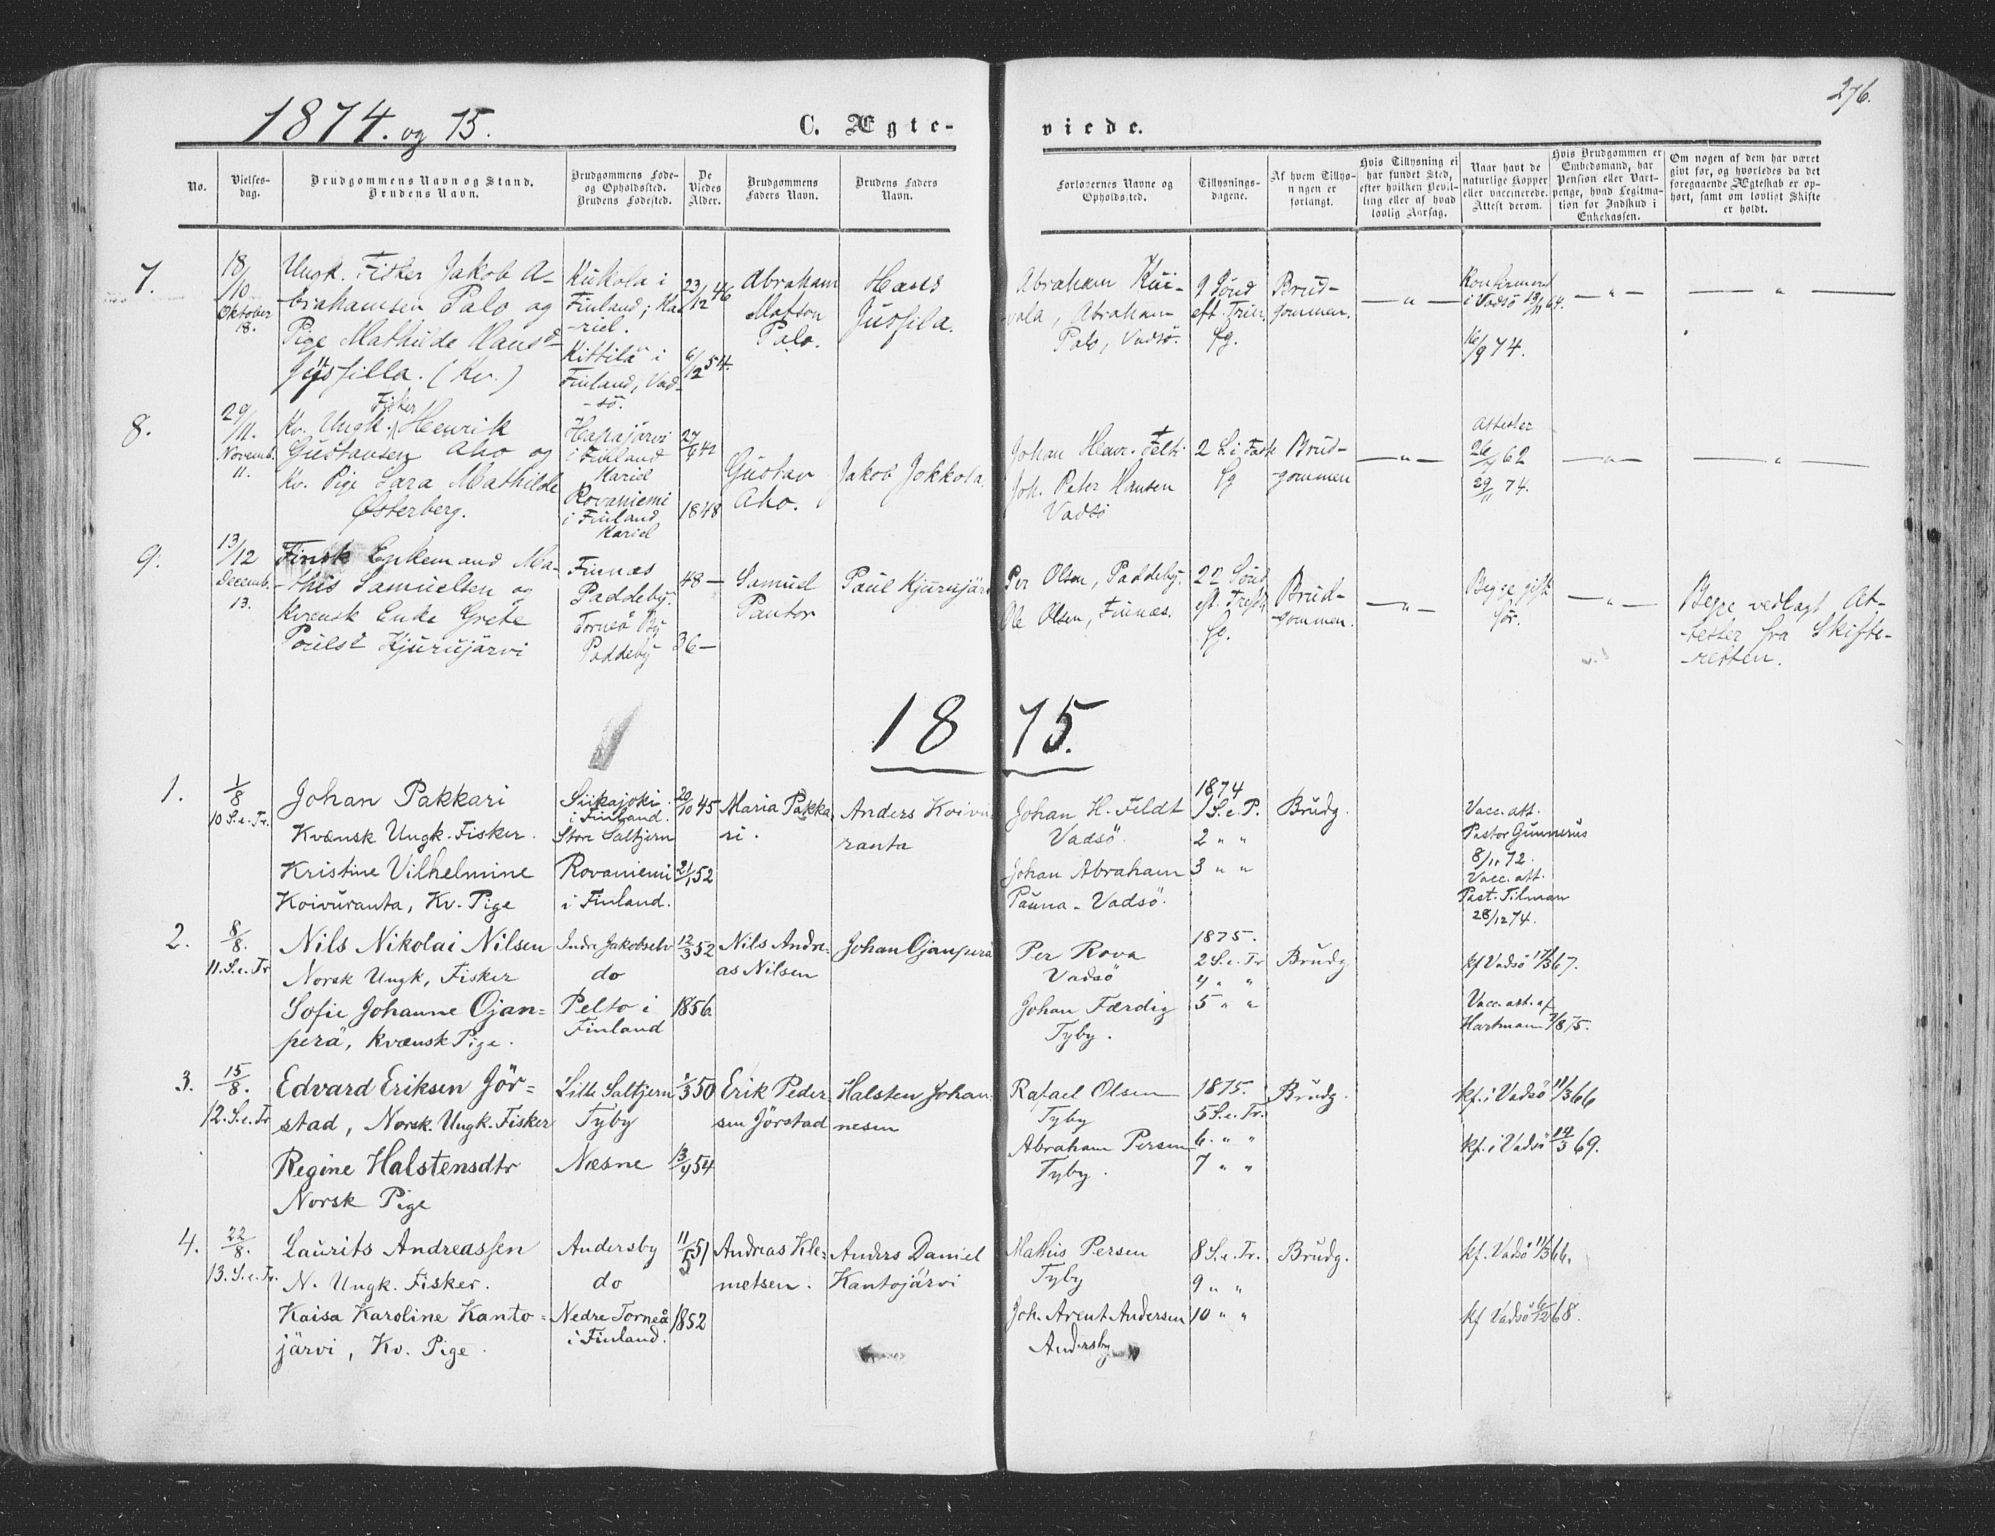 276.
1874. og 75.
C. Ægte-
viede.
No.
Vielses-
dag.
Brudgommens Navn og Stand.
Brudens Navn.
Brudgommens Føde-
og Opholdssted.
Brudens Fødested.
De
Viedes
Alder.
Brudgommens
Faders Navn.
Brudens Faders
Navn.
Forlovernes Navne og
Opholdssted.
Tillysnings-
dagene.
Af hvem Tillys-
ningen er
forlangt.
Hvis Tillysning ei
har fundet Sted,
efter hvilken Bevil-
ling eller af hvad
lovlig Aarsag.
Naar havt de
naturlige Kopper
eller vaccinerede.
Attest derom.
Hvis Brudgommen er
Embedsmand, har
Pension eller Vart-
penge, hvad Legitima-
tion for Indskud i
Enkekassen.
Om nogen af dem har været
gift før, og hvorledes da det
foregaaende Ægteskab er op-
hørt, samt om lovligt Skifte
er holdt.
7.
18/10
Oktober
18.
Ungk. Fisker Jakob A-
brahamsen Palo og
Pige Mathilde Hansd-
Jussilla. (Kv.)
Kukola i
Finland; Ka-
riel.
Kittilä i
Finland, Vad-
sö.
23/12 46
6/12 54.
Abraham
Matson
Palo.
Hans
Jussila.
Abraham Kui-
vala, Abraham
Palo, Vadsö.
9 Sönd
eft. Trin.
fg.
Brud-
gommen.
— „ —
Konfirmert
i Vadsö 13/11 64.
16/9 74.
— „ —
— „ —
8.
29/11.
Novemb.
11.
Fisker
Kv. Ungk. Henrik
Gustavsen Aho og
Kv. Pige Sara Mathilde
Østerberg.
Haapajärvi
i Finland
Kariel
Rovaniemi
i Finland
Kariel
27/6 42
1848
Gustav
Aho.
Jakob Jokkola.
Johan Henr. Felt
Joh. Peter Hansen
Vadsö
2 S. i Faste
fg
Brud-
gommen
— „ —
Attester
26/7 62
29/11 74.
— „ —
— „ —
9.
13/12
Decemb.
13.
Finsk Enkemand Ma-
this Samuelsen og
Kvensk Enke Grete
Poulsd Kjurujärvi
Finnæs
Paddeby.
Torneö By
Paddeby
48 —
36 —
Samuel
Pantor
Paul Kjurujärvi
Per Olsen, Paddeby.
Ole Olsen, Finnæs.
22 Sönd
eft. Trefg.
fg.
Brud-
gommen.
— „ —
Begge gift
för.
— „ —
Begge vedlagt At-
tester fra Skifte-
retten.
1875.
1.
1/8
10 S. e. Tr.
Johan Pakkari
Kvænsk Ungk. Fisker.
Kristine Vilhelmine
Koivuranta, Kv. Pige
Siikajoki
i Finland.
Store Saltjern
Rovaniemi
i Finland.
20/10 45
21/1 52
Maria Pakka-
ri.
Anders Koivu-
ranta
Johan H. Feldt
Vadsö.
Johan Abraham
Pauna - Vadsö.
1874
1 S. e. P.
2 „ „
3 „ „
Brudg.
Vacc. att.
Pastor Gunnerus
8/11 72.
Vacc. att.
Past. Tilman
28/12 74.
2.
8/8.
11. S. e. Tr
Nils Nikolai Nilsen
Norsk Ungk, Fisker
Sofie Johanne Ojan=
perä, Kvænsk Pige.
Indre Jakobselv
do
Pelto i
Finland
12/3 52
1856
Nils Andre-
as Nilsen
Johan Ojanperä
Per Rova
Vadsö
Johan Færdig
Tyby.
1875.
2 S. e. Tr
4 „ „
5 „ „
Brudg
kf Vadsö 17/3 67.
Vacc. att. af
Hartmann 7/8 75.
3.
15/8.
12. S. e. Tr
Edvard Eriksen Jör=
stad, Norsk. Ungk. Fisker
Regine Halstensdtr
Norsk Pige
Lille Saltjern
Tyby
Næsne
1/3 50
13/4 54
Erik Peder-
sen Jörstad
Halsten Johan-
nesen
Rafael Olsen
Tyby
Abraham Persen
Tyby.
1875.
5 S. e. Tr.
6. „ „
7 „ „
Brudg.
kf. i Vadsö 11/3 66
kf. i Vadsö 14/3 69.
4.
22/8.
13. S. e. Tr.
Laurits Andreassen
N. Ungk. Fisker.
Kaisa Karoline Kanto=
järvi, Kv. Pige.
Andersby
do
Nedre Torneå
i Finland.
11/5 51
1852
Andreas Kle-
metsen.
Anders Daniel
Kantojärvi
Mathis Persen
Tyby
Joh. Arent Andersen
Andersby
8 S. e. Tr.
9 „ „
10 „ „
Brudg.
kf. Vadsö 11/3 66.
kf Vadsö 6/12 68.